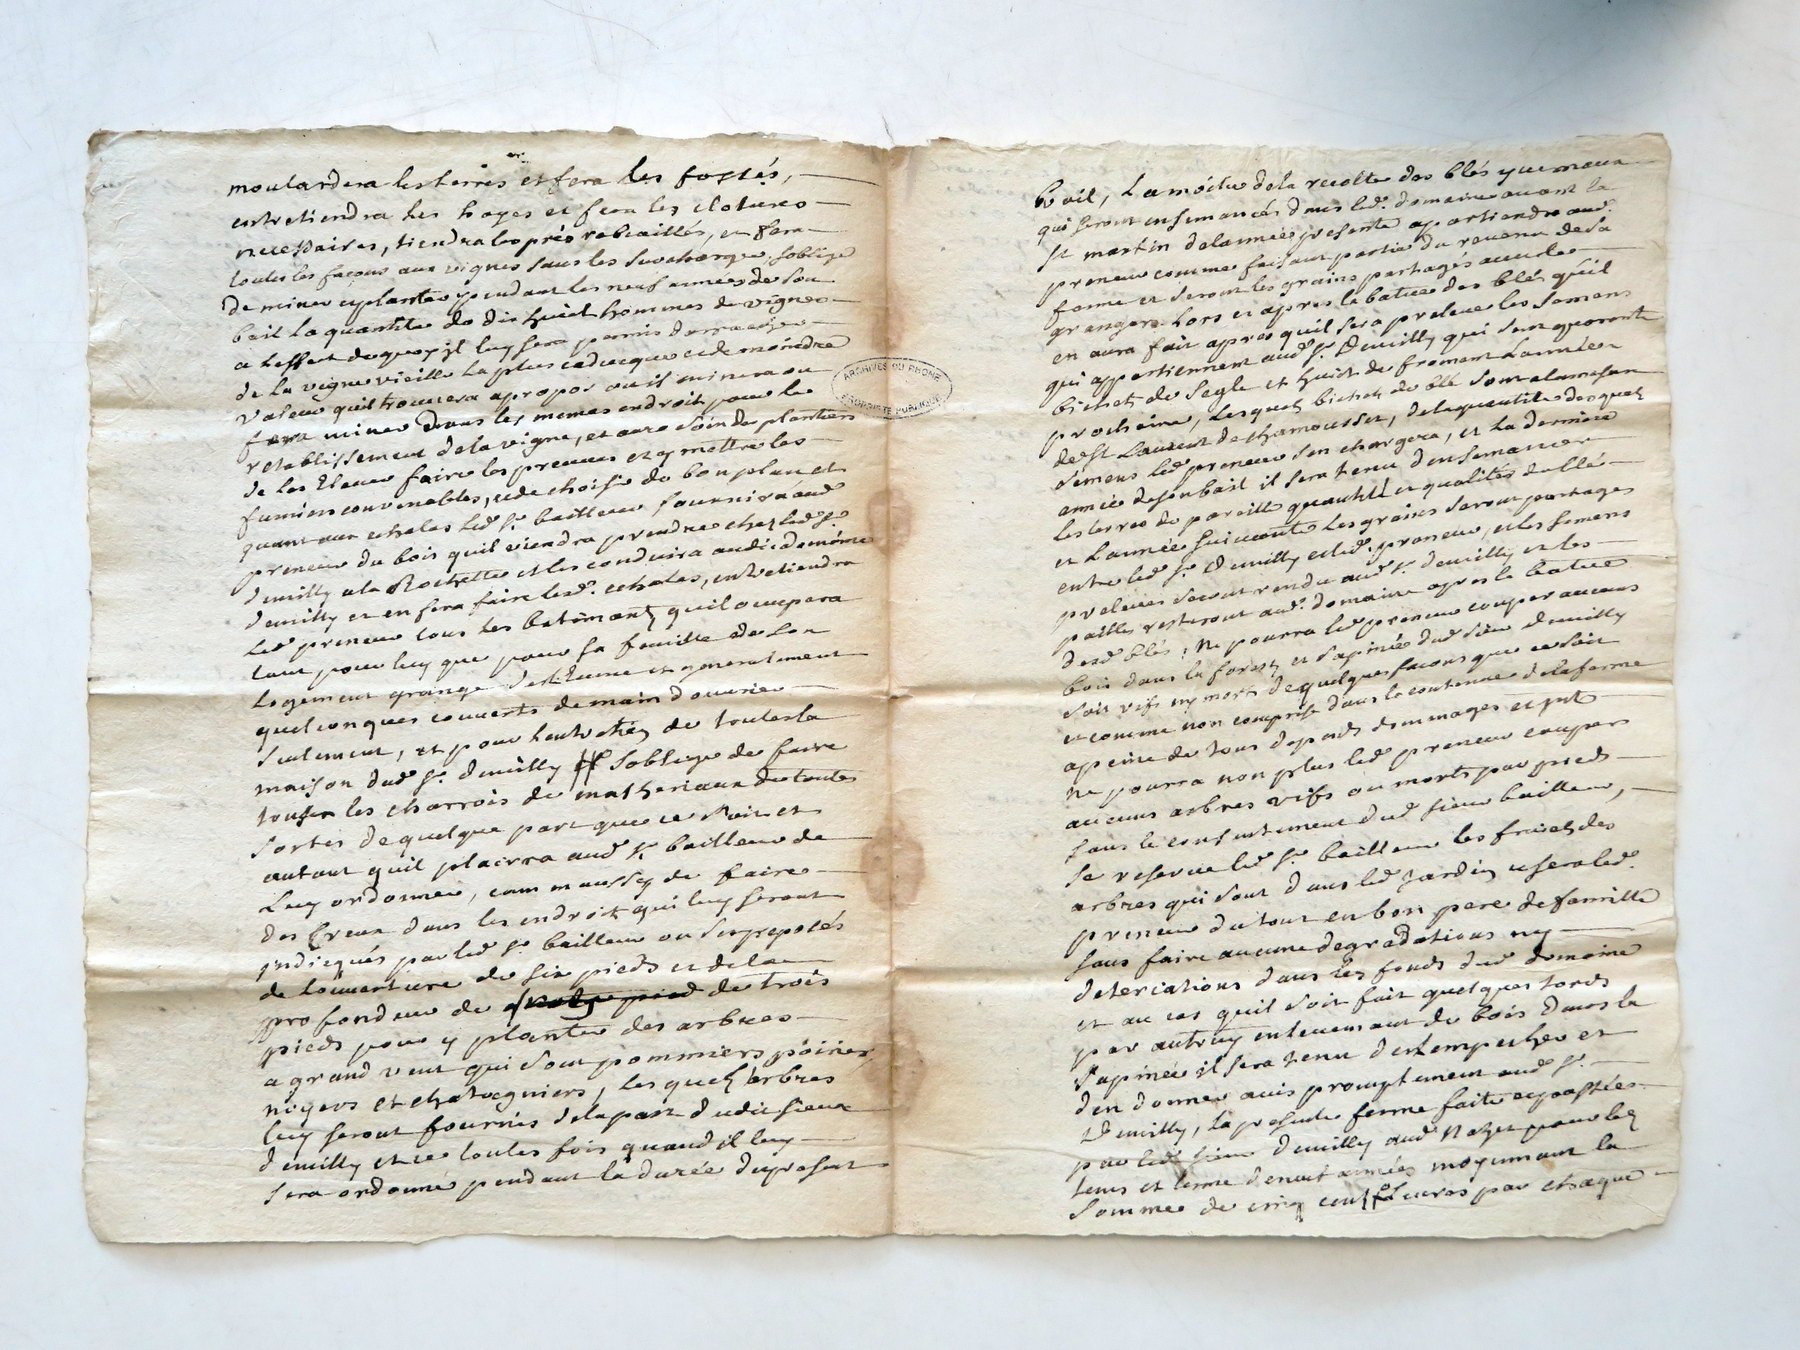 moulardera les terres et fera les fossés,
entretiendra les hayes et fera les clotures
necessaires, tiendra les prés rebeaillés, et fera
toutes les façons aux vignes sans les surcharger, soblige
de miner et planter pendant les neuf années de son
bail la quantité de dix huit hommes de vignes
a leffect de quoy il luy sera permis darracher
de la vigne vieille la plus caducque et de moindre
valeur quil trouvera apropos ou il minera ou
fera miner dans les memes endroits pour le
retablissement de la vigne, et aura soin des plantiers
de les Elever faire les preuves et y mettre les
fumiers convenables, et de choisir de bon plan et
quant aux echalas led. sr. bailleur fournira aud.
preneur du bois quil viendra prendre chez led. sr.
deuilly a la Rochette et les conduira audit domaine
deuilly et en fera faire lesd. echalas, entretiendra
led. preneur tous les batiments quil occupera
tant pour luy que pour sa famille de son
logement grange et generalement
quelconques couverts de main douvrier
seulement, et pour lentretien de toute la
maison dud. sr. deuilly soblige de faire
tous les charrois de matheriaux de toutes
sortes de quelque part que ce soit et
autant quil plairra aud. sr. bailleur de
luy ordonner, comm aussy de faire
des Creux dans les endroits qui luy seront
jndicqués par led. sr. bailleur ou ses preposés
de louverture de six pieds et de la
profondeur de de trois
pieds pour y planter des arbres
a grand vent qui sont pommiers poiriers
noyers et chataigniers, les quels arbres
luy seront fournis de la part dudit sieur
deuilly et ce toutes fois quand il luy
sera ordonné pendant la durée du present
bail, La moitié de la recolte des blés
qui seront ensemancés dans led. domaine avant la
st martin de lannée presente apartiendra aud.
preneur comme faisant partie du revenu de sa
ferme et seront les grains partagés avec le
granger lors et apres la batue des blés quil
en aura fait apres quil sera prelevé les semens
qui appartiennent aud. sr. Deuilly qui sont quarante
bichets de segle et huit de froment Lannée
prochaine, Lesquels bichets de blé sont a la mesure
de St Laurent de chamousset, de la quantité desquels
semens led. preneur sen chargera, et la derniere
année de son bail il sera tenu densemancer
les terres de pareille quantité et qualités de blé
et Lannée suivante Les grains seront partagés
entre led. sr. Deuilly et led. preneur, et les semens
prelevés seront rendu aud. sr. deuilly et les
pailles resteront aud. domaine apres la batue
desd. blés; Ne pourra led. preneur couper aucuns
bois dans la forest et sapinée dud. sieur deuilly
soit vifs ny morts de quelques facons que ce soit
et comme non compris dans la contenue de la ferme
apeine de tous depends dommages et jnts
ne pourra non plus led. preneur couper
aucuns arbres vifs ou morts par pieds
sans le consentement dud. sieur bailleur,
se reserve led. sr. bailleur les fruits des
arbres qui sont dans led. Jardin usera led.
preneur du tout en bon pere de famille
sans faire aucune degradations ny
deteriations dans les fonds dud. domaine
et au cas quil soit fait quelques torts
par autruy enlevement de bois dans la
sapinée il sera tenu dempecher et
den donner avis promptement aud. sr.
Deuilly, La presente ferme faite et passée
par led. sieur deuilly aud. pour les
tems et terme de neuf années moyennant la
somme de cinq cents Livres par chaque
ARCHIVES DU RHONE
PROPRIÉTÉ PUBLIQUE